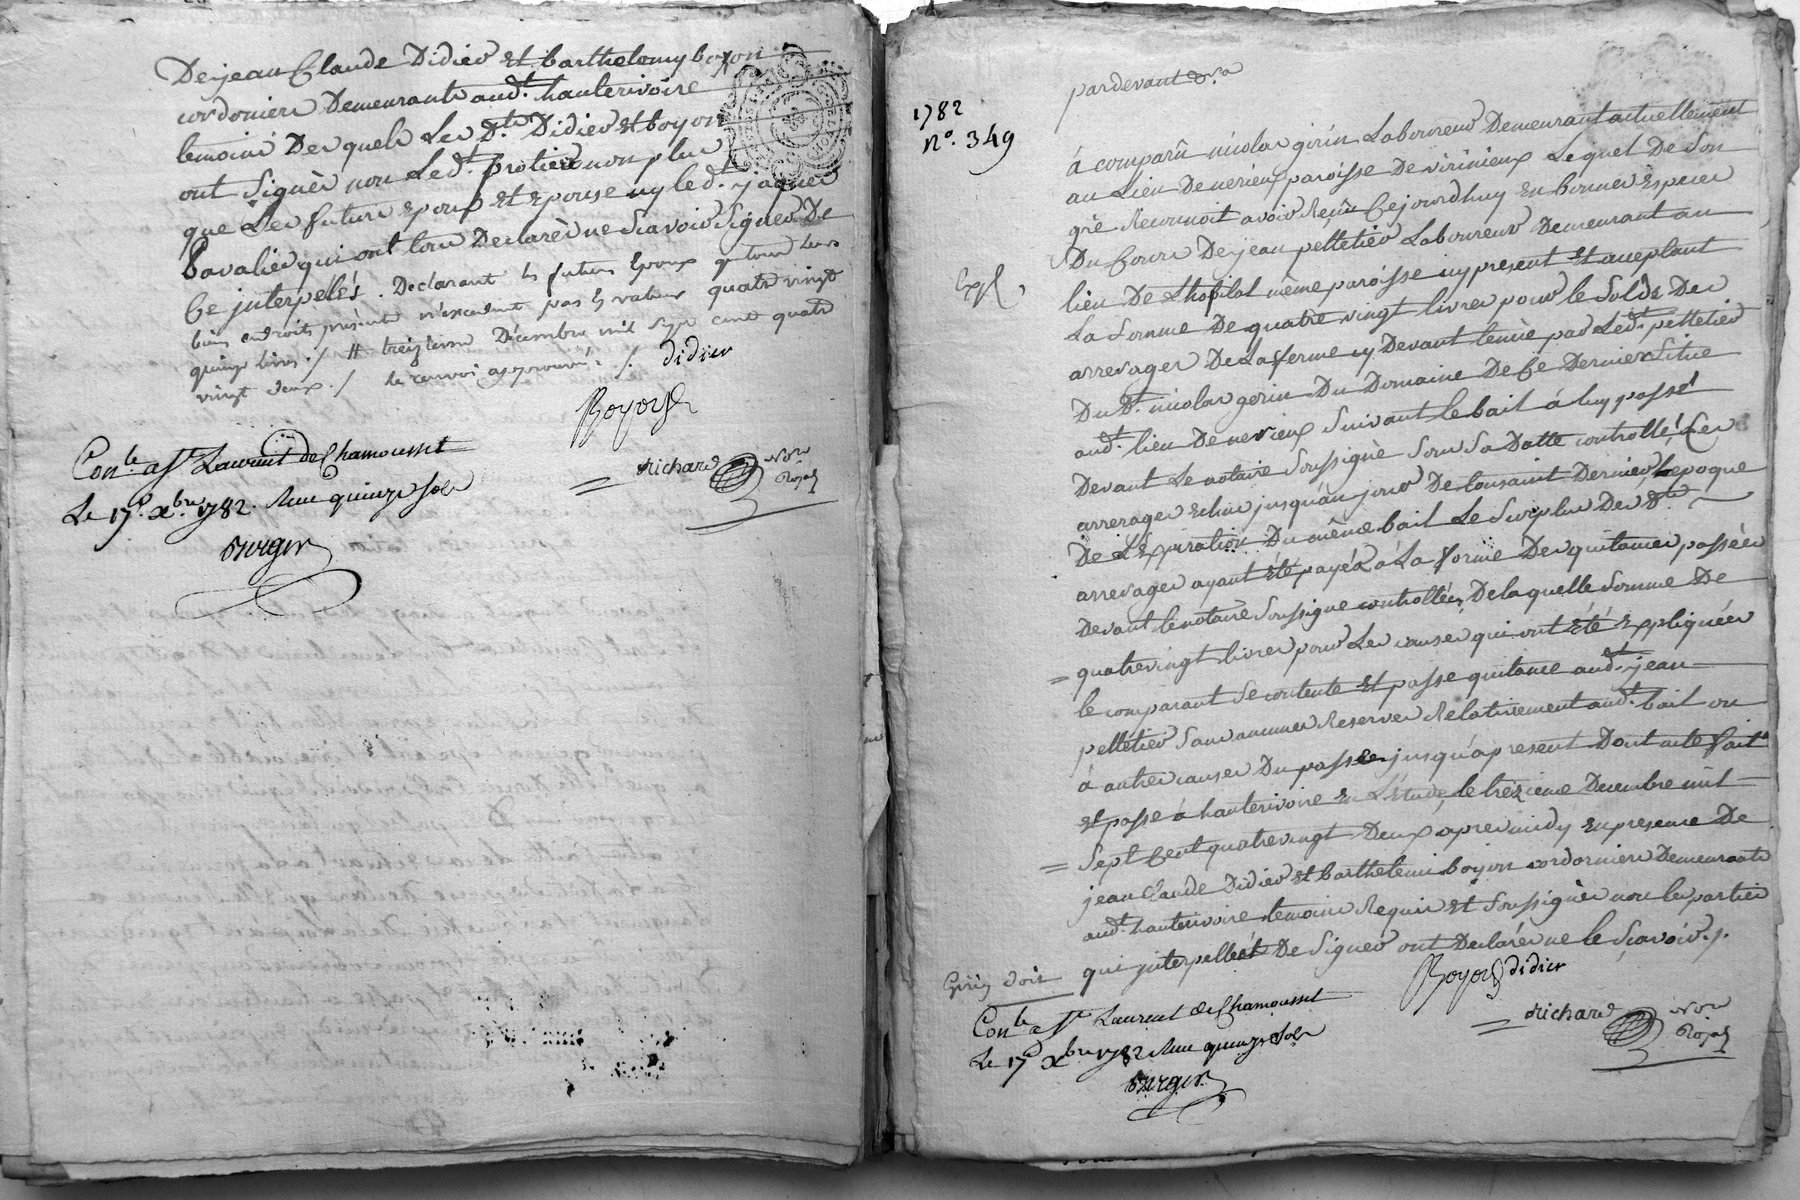 De jean Claude Didier et barthelemy boyon
cordoniers Demeurants aud.t hauterivoire
temoins Des quels Les d.ts Didier et boyon
ont Signés non Led.t protiere non plus
que Les futurs Epoux et Epouse ny led.t jaques
Cavalier qui ont tous Declarés ne Scavoir Signer De
Ce jnterpelés. Declarant les futurs Epoux que tous leurs
biens et droits présents n'excedent pas la valeur quatre vingt
quinze livres ./. # treizieme Décembre mil Sept cent quatre
vingt deux ./. le renvoi approuvé ./. didier
Boyon
richard Not.re Royal
Con.lé a S.t Laurent de Chamousset
Le 17.e xbre 1782. Reçu quinze Sols
1782
N.o 349
pardevant &.a
à comparû nicolas girin Laboureur Demeurant actuellement
au Lieu De nerieux paroisse De virinieux Lequel De Son
gré Reconnoit avoir Reçû Cejourdhuy En bonnes Especes
Du Cours De jean pelletier Laboureur Demeurant au
Expl.
lieu De Lhopital même paroisse icy present Et aceptant
La Somme De quatre vingt livres pour le Solde Des
arrerages De La ferme cy Devant tenüe par Led.t pelletier
Du d.t nicolas gerin Du Domaine De Ce Dernier Situé
aud.t lieu De nerieux Suivant le bail à luy passé
Devant Le notaire Soussigné Sous Sa Datte controllé, Ces
arrerages echus jusqu'au jour De tousaint Dernier, Epoque
De L'Expiration Du même bail Le Surplus Des d.ts
arrerages ayant été payés à La forme Des quitances passées
Devant le notaire Soussigné controllées, De laquelle Somme De
quatre vingt livres pour Les causes qui ont été Expliquées
le comparant Se contente Et passe quitance aud.t jean
pelletier Sans aucunes Reserves Relativement aud.t bail ou
à autres causes Du passé jusqu'a present Dont acte fait
et passé à hauterivoire En L'Etude, le treizieme Decembre mil
Sept Cent quatre vingt Deux après midy En presence De
jean Claude Didier Et barthelemi boyon cordonniers Demeurants
aud.t hauterivoire temoins Requis Et Soussignés non les parties
qui jnterpellées De Signer ont Declarés ne le Sçavoir ./.
Girin doit
Boyon didier
richard Not.re Royal
Con.lé a S.t Laurent de Chamousset
Le 17.e xbre 1782 Reçu quinze Sols